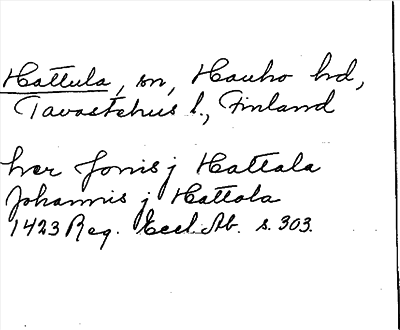 Hattula, sn, Hauho hd,
Tavastehus l., Finland
her Jönis j Hattala
Johannis j Hattola
1423 Reg. Eccl. Ab. s. 303.